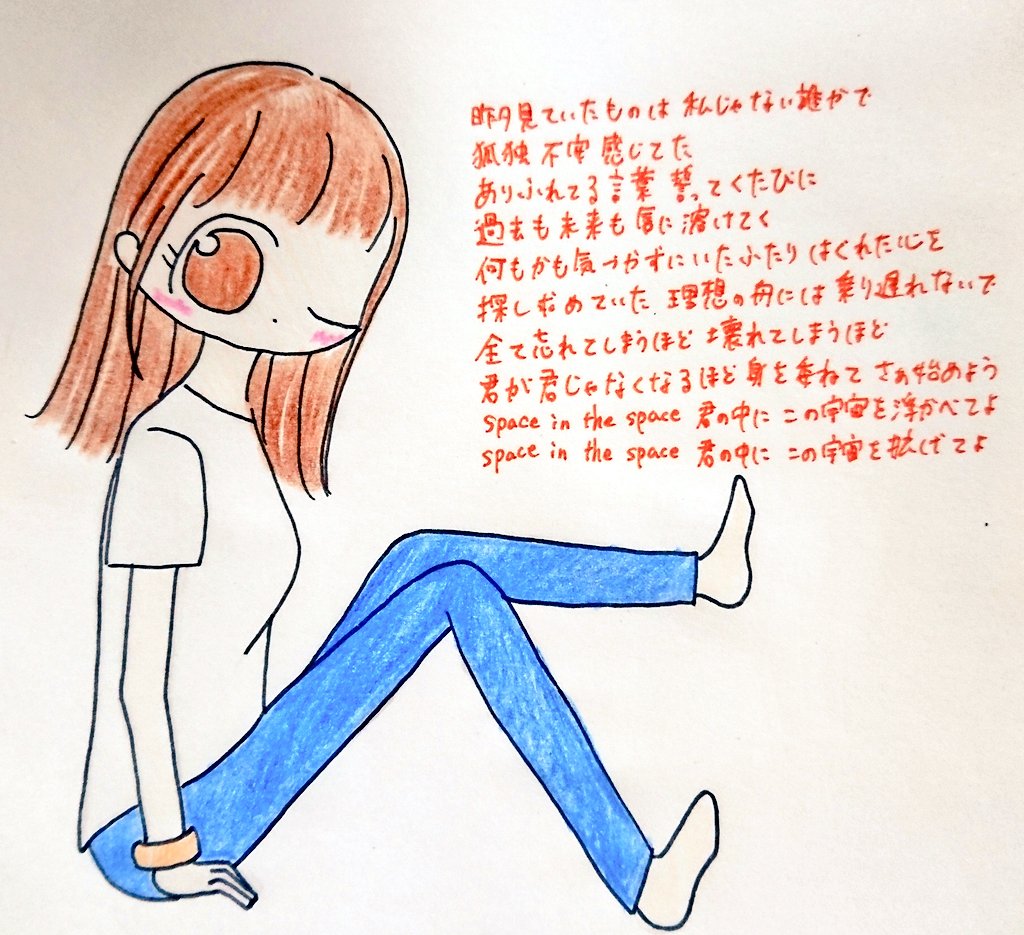 昨夕見ていたものは 私じゃない誰かで
孤独 不安 感じてた
ありふれてる言葉 誓ってくたびに
過去も未来も唇に溶けてく
何もかも気づかずにいたふたり はぐれた心を
探し求めていた 理想の舟には乗り遅れないで
全て忘れてしまうほど 壊れてしまうほど
君が君じゃなくなるほど 身を委ねて さぁ始めよう
space in the space 君の中に この宇宙を浮かべてよ
space in the space 君の中に この宇宙を拡げてよ